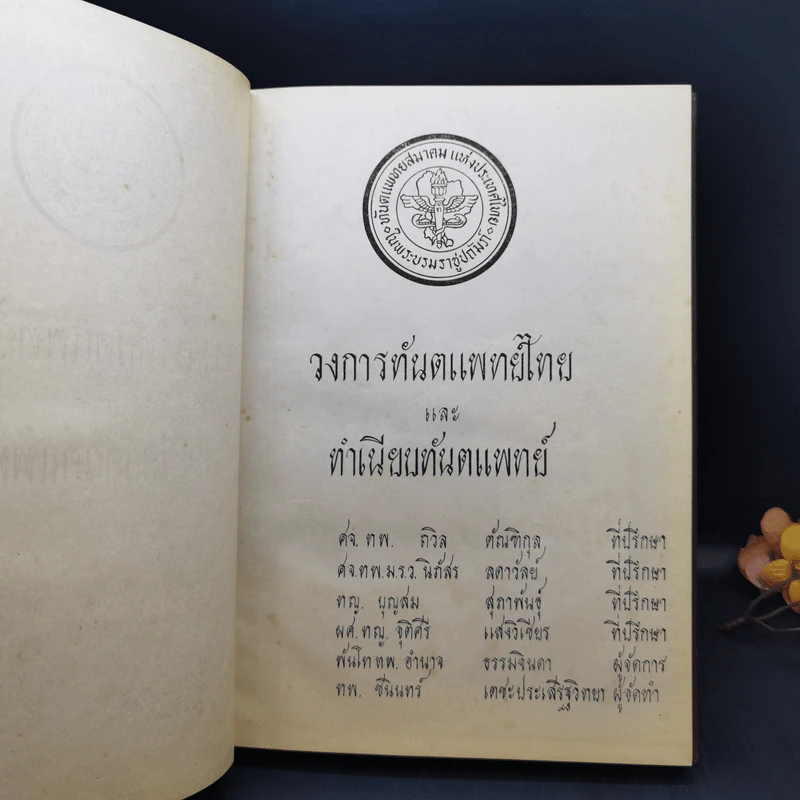 ทันตแพทยสมาคม แห่งประเทศไทย
ในพระบรมราชูปถัมภ์
วงการทันตแพทย์ไทย
และ
ทำเนียบทันตแพทย์
ศจ. ทพ. ถวิล ตัณฑิกุล ที่ปรึกษา
ศจ.ทพ.ม.ร.ว. นิภัสร ลดาวัลย์ ที่ปรึกษา
ทญ. บุญสม สุภาพันธุ์ ที่ปรึกษา
ผศ. ทญ. ฐิติศิริ แสงวิเชียร ที่ปรึกษา
พันโท ทพ. อำนาจ ธรรมจินดา ผู้จัดการ
ทพ. ชนินทร์ เตชะประเสริฐวิทยา ผู้จัดทำ